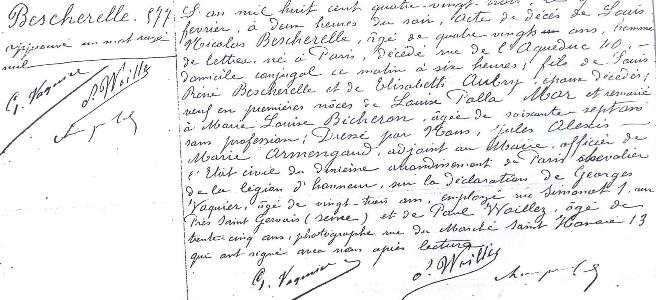 Bescherelle. 577
approuvé un mot rayé
nul
G. Vaquier P. Woillez
L'an mil huit cent quatre-vingt trois, le
février, à deux heures du soir, Acte de décès de Louis
Nicolas Bescherelle, âgé de quatre vingts un ans, homme
de lettres, né à Paris, décédé rue de l'Aqueduc 40,
domicile conjugal ce matin à six heures; fils de Louis
René Bescherelle et de Elisabeth Aubry, époux décédés;
veuf en premières nôces de Louise Palla Mar et remarié
à Marie Louise Bicheron, âgée de soixante sept ans
sans profession; Dressé par Nous, Jules Alexis
Marie Armengaud, adjoint au Maire, officier de
l'Etat civil du dixième arrondissement de Paris chevalier
de la légion d'honneur, sur la déclaration de Georges
Vaquier, âgé de vingt-trois ans, employé rue Simonot 1, aux
Près Saint Gervais (Seine) et de Paul Woillez, âgé de
trente cinq ans, photographe rue du Marché Saint Honoré 13
qui ont signé avec nous après lecture
G. Vaquier P. Woillez